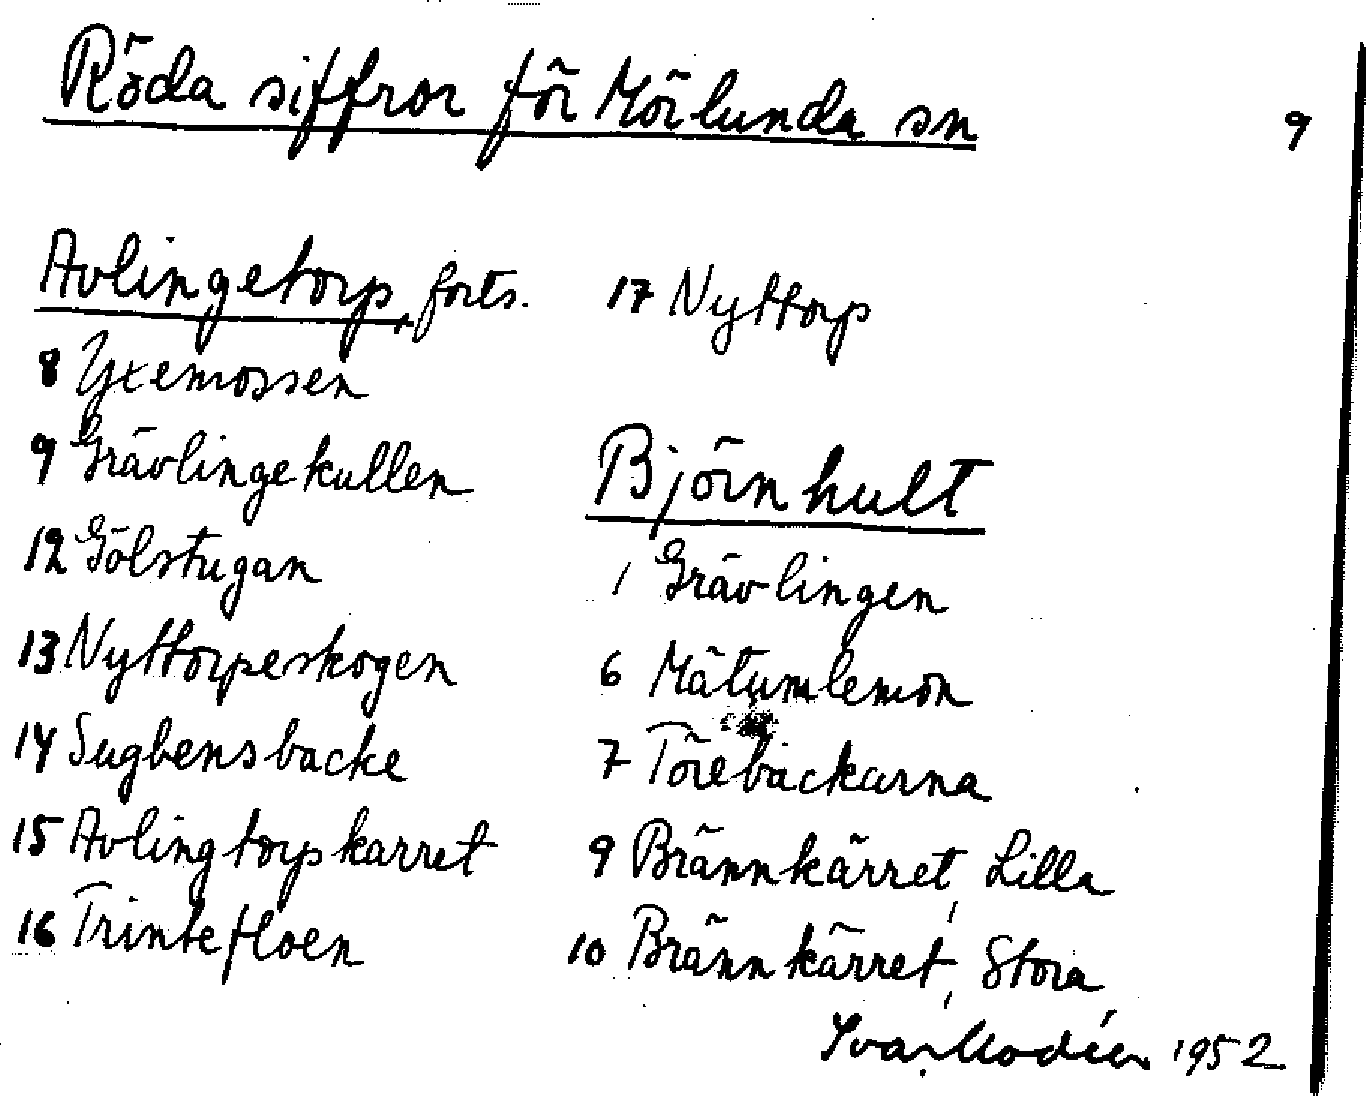 Röda siffror för Mörlunda sn
9
Avlingetorp, forts.
8 Yxemossen
9 Grävlingekullen
12 Gölstugan
13 Nyttorpeskogen
14 Sugbensbacke
15 Avlingtorpskarret
16 Trintefloen
17 Nyttorp
Björnhult
1 Grävlingen
6
7 Törebackarna
9 Brännkärret, Lilla
10 Brännkärret, Stora
Ivar Modéer 1952